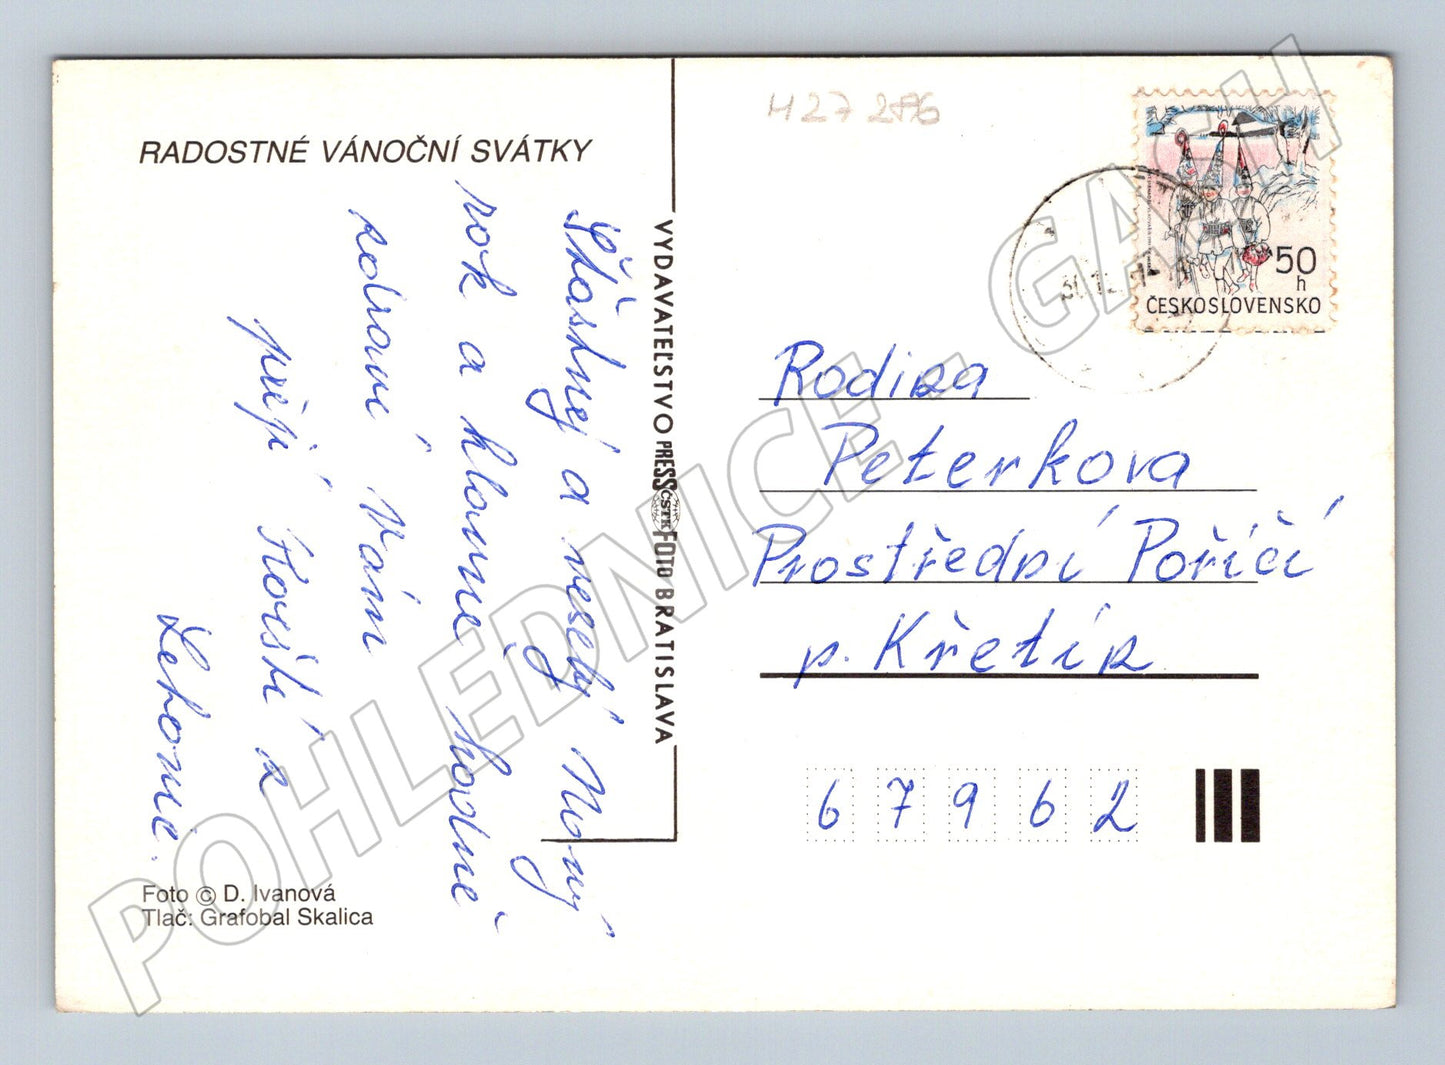 RADOSTNÉ VÁNOČNÍ SVÁTKY
Šťastnej a veselý Nový
rok a hlavně hodně
zdraví Vám
přejí Horští z
Letovic.
Foto © D. Ivanová
Tlač: Grafobal Skalica
VYDAVATEĽSTVO PRESSFOTO BRATISLAVA
ČSTK
H27 286
50
h
ČESKOSLOVENSKO
Rodina
Peterkova
Prostřední Poříčí
p. Křetín
6 7 9 6 2
POHLEDNICE - GASH